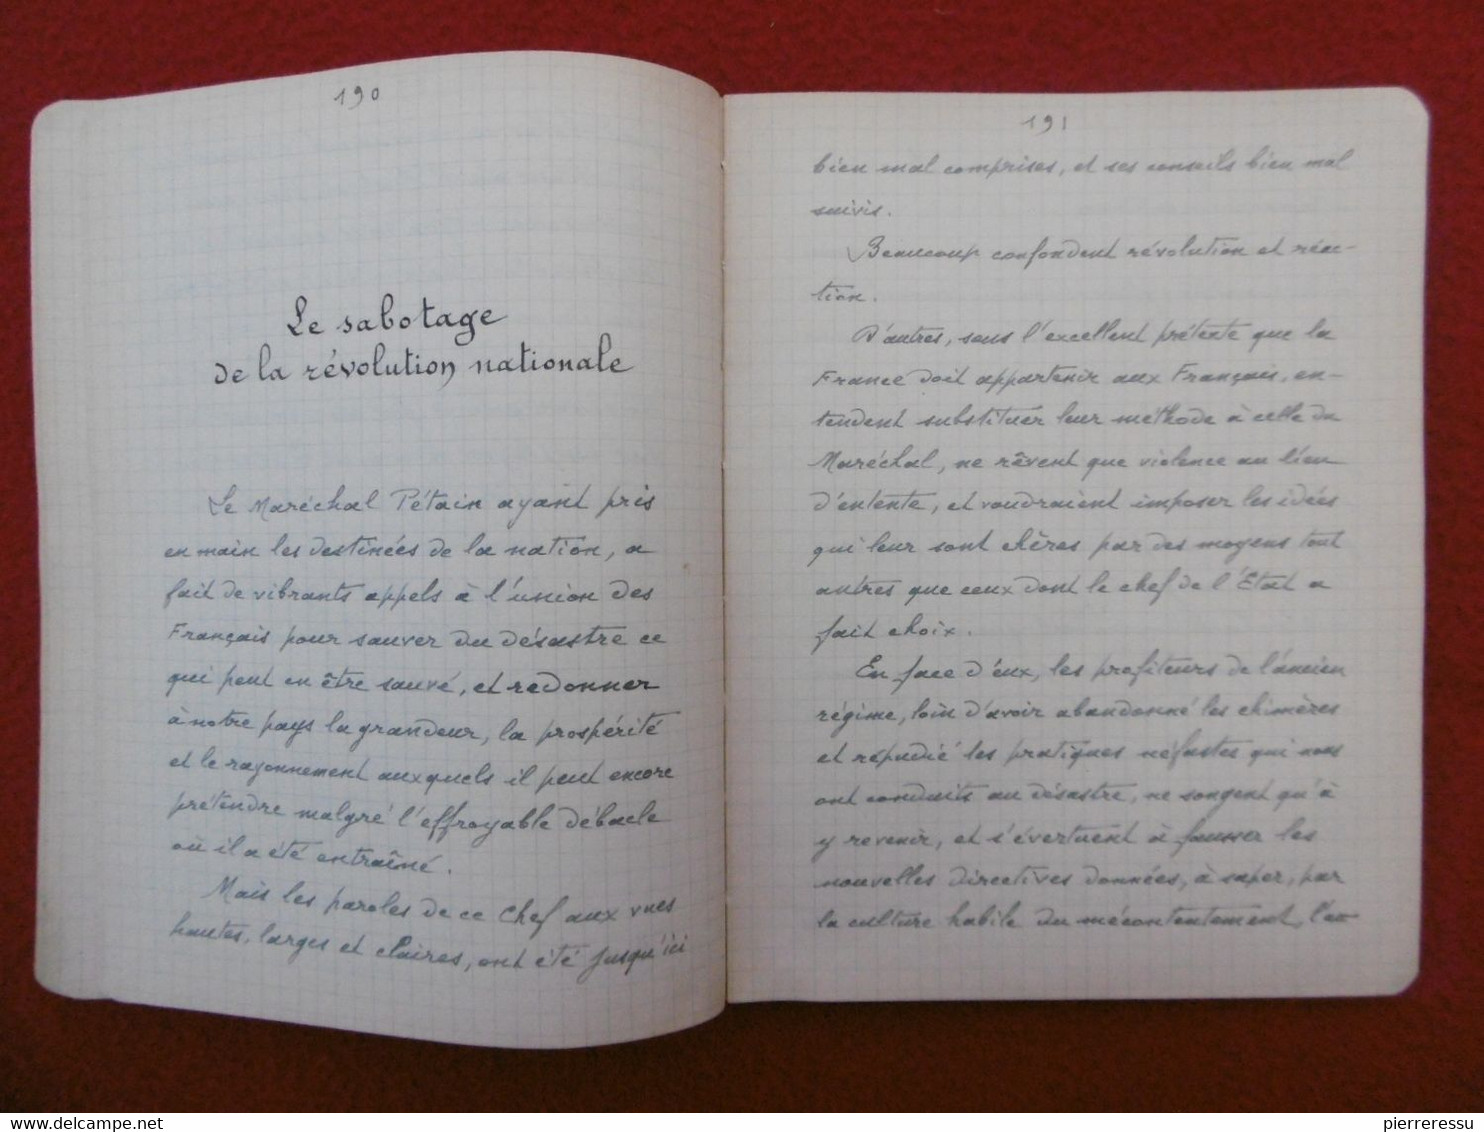 190
Le sabotage
de la révolution nationale
Le Maréchal Pétain ayant pris
en main les destinées de la nation, a
fait de vibrants appels à l'union des
Français pour sauver du désastre ce
qui peut en être sauvé, et redonner
à notre pays la grandeur, la prospérité
et le rayonnement auxquels il peut encore
prétendre malgré l'effroyable débacle
où il a été entraîné.
Mais les paroles de ce Chef aux vues
hautes, larges et claires, ont été jusqu'ici
191
bien mal comprises, et ses conseils bien mal
suivis.
Beaucoup confondent révolution et réac-
tion.
D'autres, sous l'excellent prétexte que la
France doit appartenir aux Français, en-
tendent substituer leur méthode à celle du
Maréchal, ne rêvent que violence au lieu
d'entente, et voudraient imposer les idées
qui leur sont chères par des moyens tout
autres que ceux dont le chef de l'Etat a
fait choix.
En face d'eux, les profiteurs de l'ancien
régime, loin d'avoir abandonné les chimères
et répudié les pratiques néfastes qui nous
ont conduits au désastre, ne songent qu'à
y revenir, et s'évertuent à fausser les
nouvelles directives données, à saper, par
la culture habile du mécontentement, l'œ-
delcampe.net
pierreressu